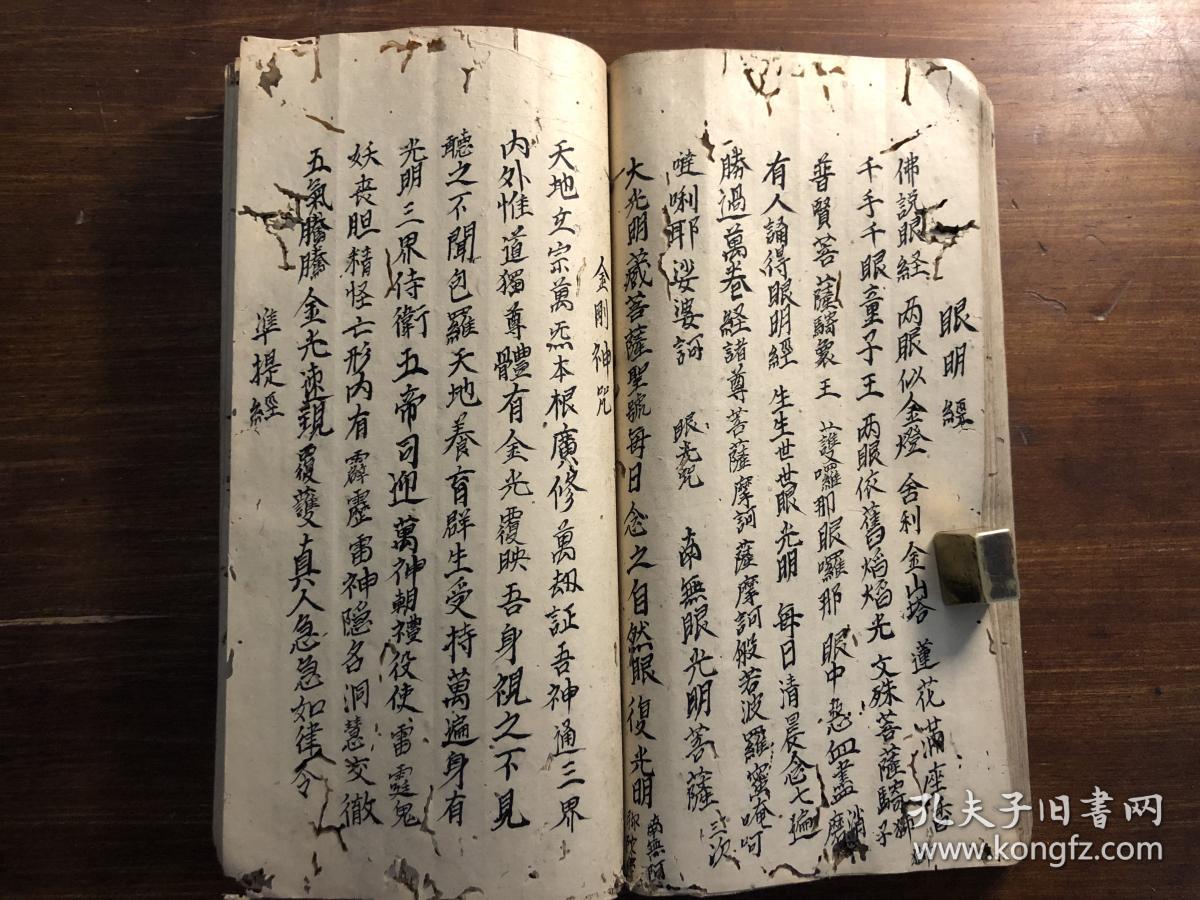 眼明經
佛説眼経 两眼似金燈 舍利金山塔 蓮花滿座香
千手千眼童子王 两眼依舊焰焰光 文殊菩薩騎獅子
普賢菩薩騎象王 䕶囉那眼囉那 眼中惡血盡消磨
有人誦得眼明經 生生世世眼光明 每日清晨念七遍
勝過萬卷経諸尊菩薩摩訶薩摩訶般若波羅蜜唵呵
㗌唎耶娑婆訶 眼光咒 南無眼光明菩薩 三次
大光明藏菩薩聖號每日念之自然眼復光明 南無阿
金剛神咒
天地玄宗萬炁本根廣修萬劫証吾神通三界
内外惟道獨尊體有金光覆映吾身視之不見
聽之不聞包羅天地養育群生受持萬遍身有
光明三界侍衛五帝司迎萬神朝禮役使雷霆鬼
妖丧胆精怪亡形内有霹靂雷神隱名洞慧交徹
五氣騰騰金光速覲覆護真人急急如律令
準提經
孔夫子旧書网
www.kongfz.com